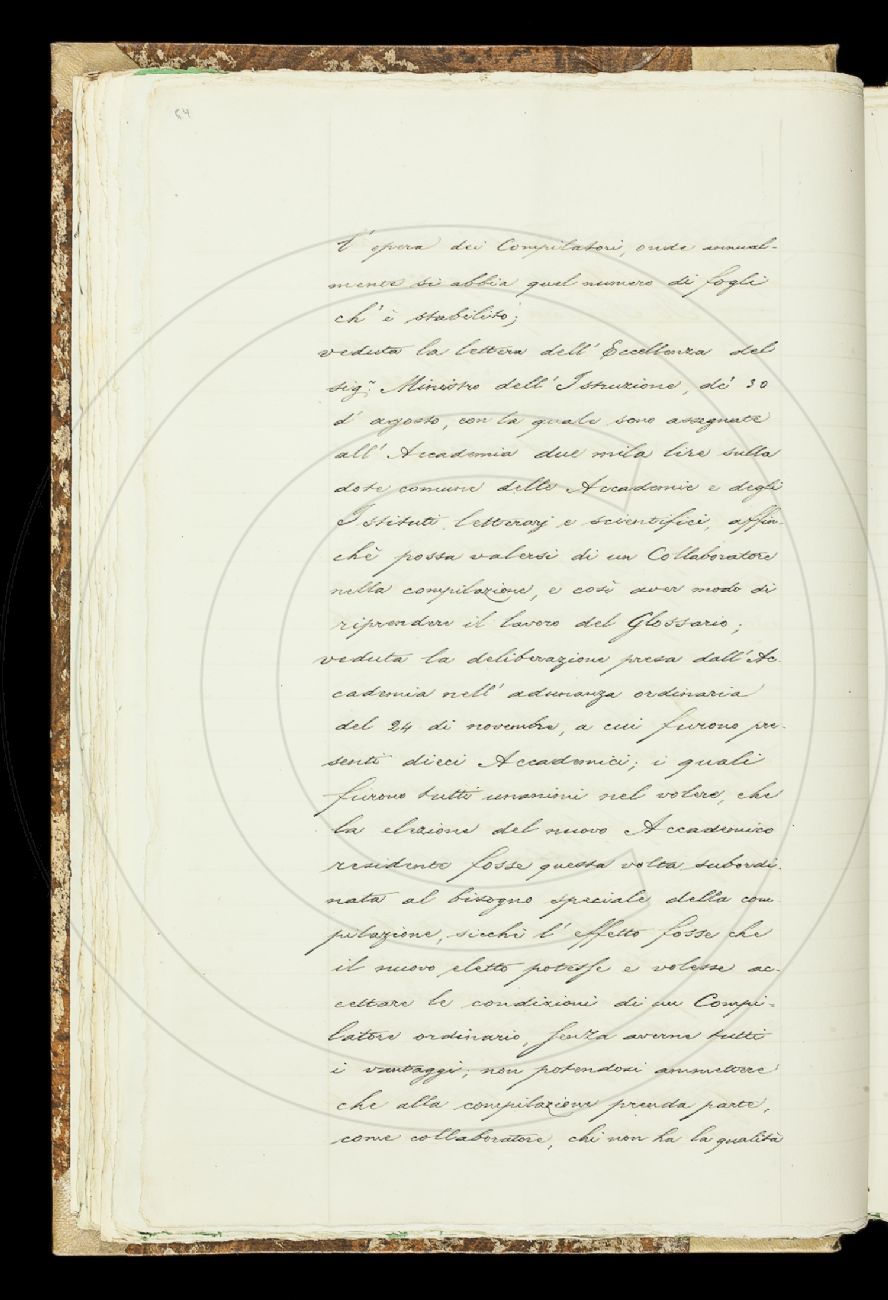 64
l' opera dei Compilatori, onde annual-
mente si abbia quel numero di fogli
ch' è stabilito;
veduta la lettera dell' Eccellenza del
sig.r Ministro dell' Istruzione, de' 30
d' agosto, con la quale sono assegnate
all' Accademia due mila lire sulla
dote comune delle Accademie e degli
Istituti letterarj e scientifici, affin-
chè possa valersi di un Collaboratore
nella compilazione, e così aver modo di
riprendere il lavoro del Glossario;
veduta la deliberazione presa dall' Ac-
cademia nell' adunanza ordinaria
del 24 di novembre, a cui furono pre-
senti dieci Accademici; i quali
furono tutti unanimi nel volere, che
la elezione del nuovo Accademico
residente fosse questa volta subordi-
nata al bisogno speciale della com-
pilazione, sicchè l' effetto fosse che
il nuovo eletto potesse e volesse ac-
cettare le condizioni di un Compi-
latore ordinario, senza averne tutti
i vantaggi; non potendosi ammettere
che alla compilazione prenda parte,
come collaboratore, chi non ha la qualità